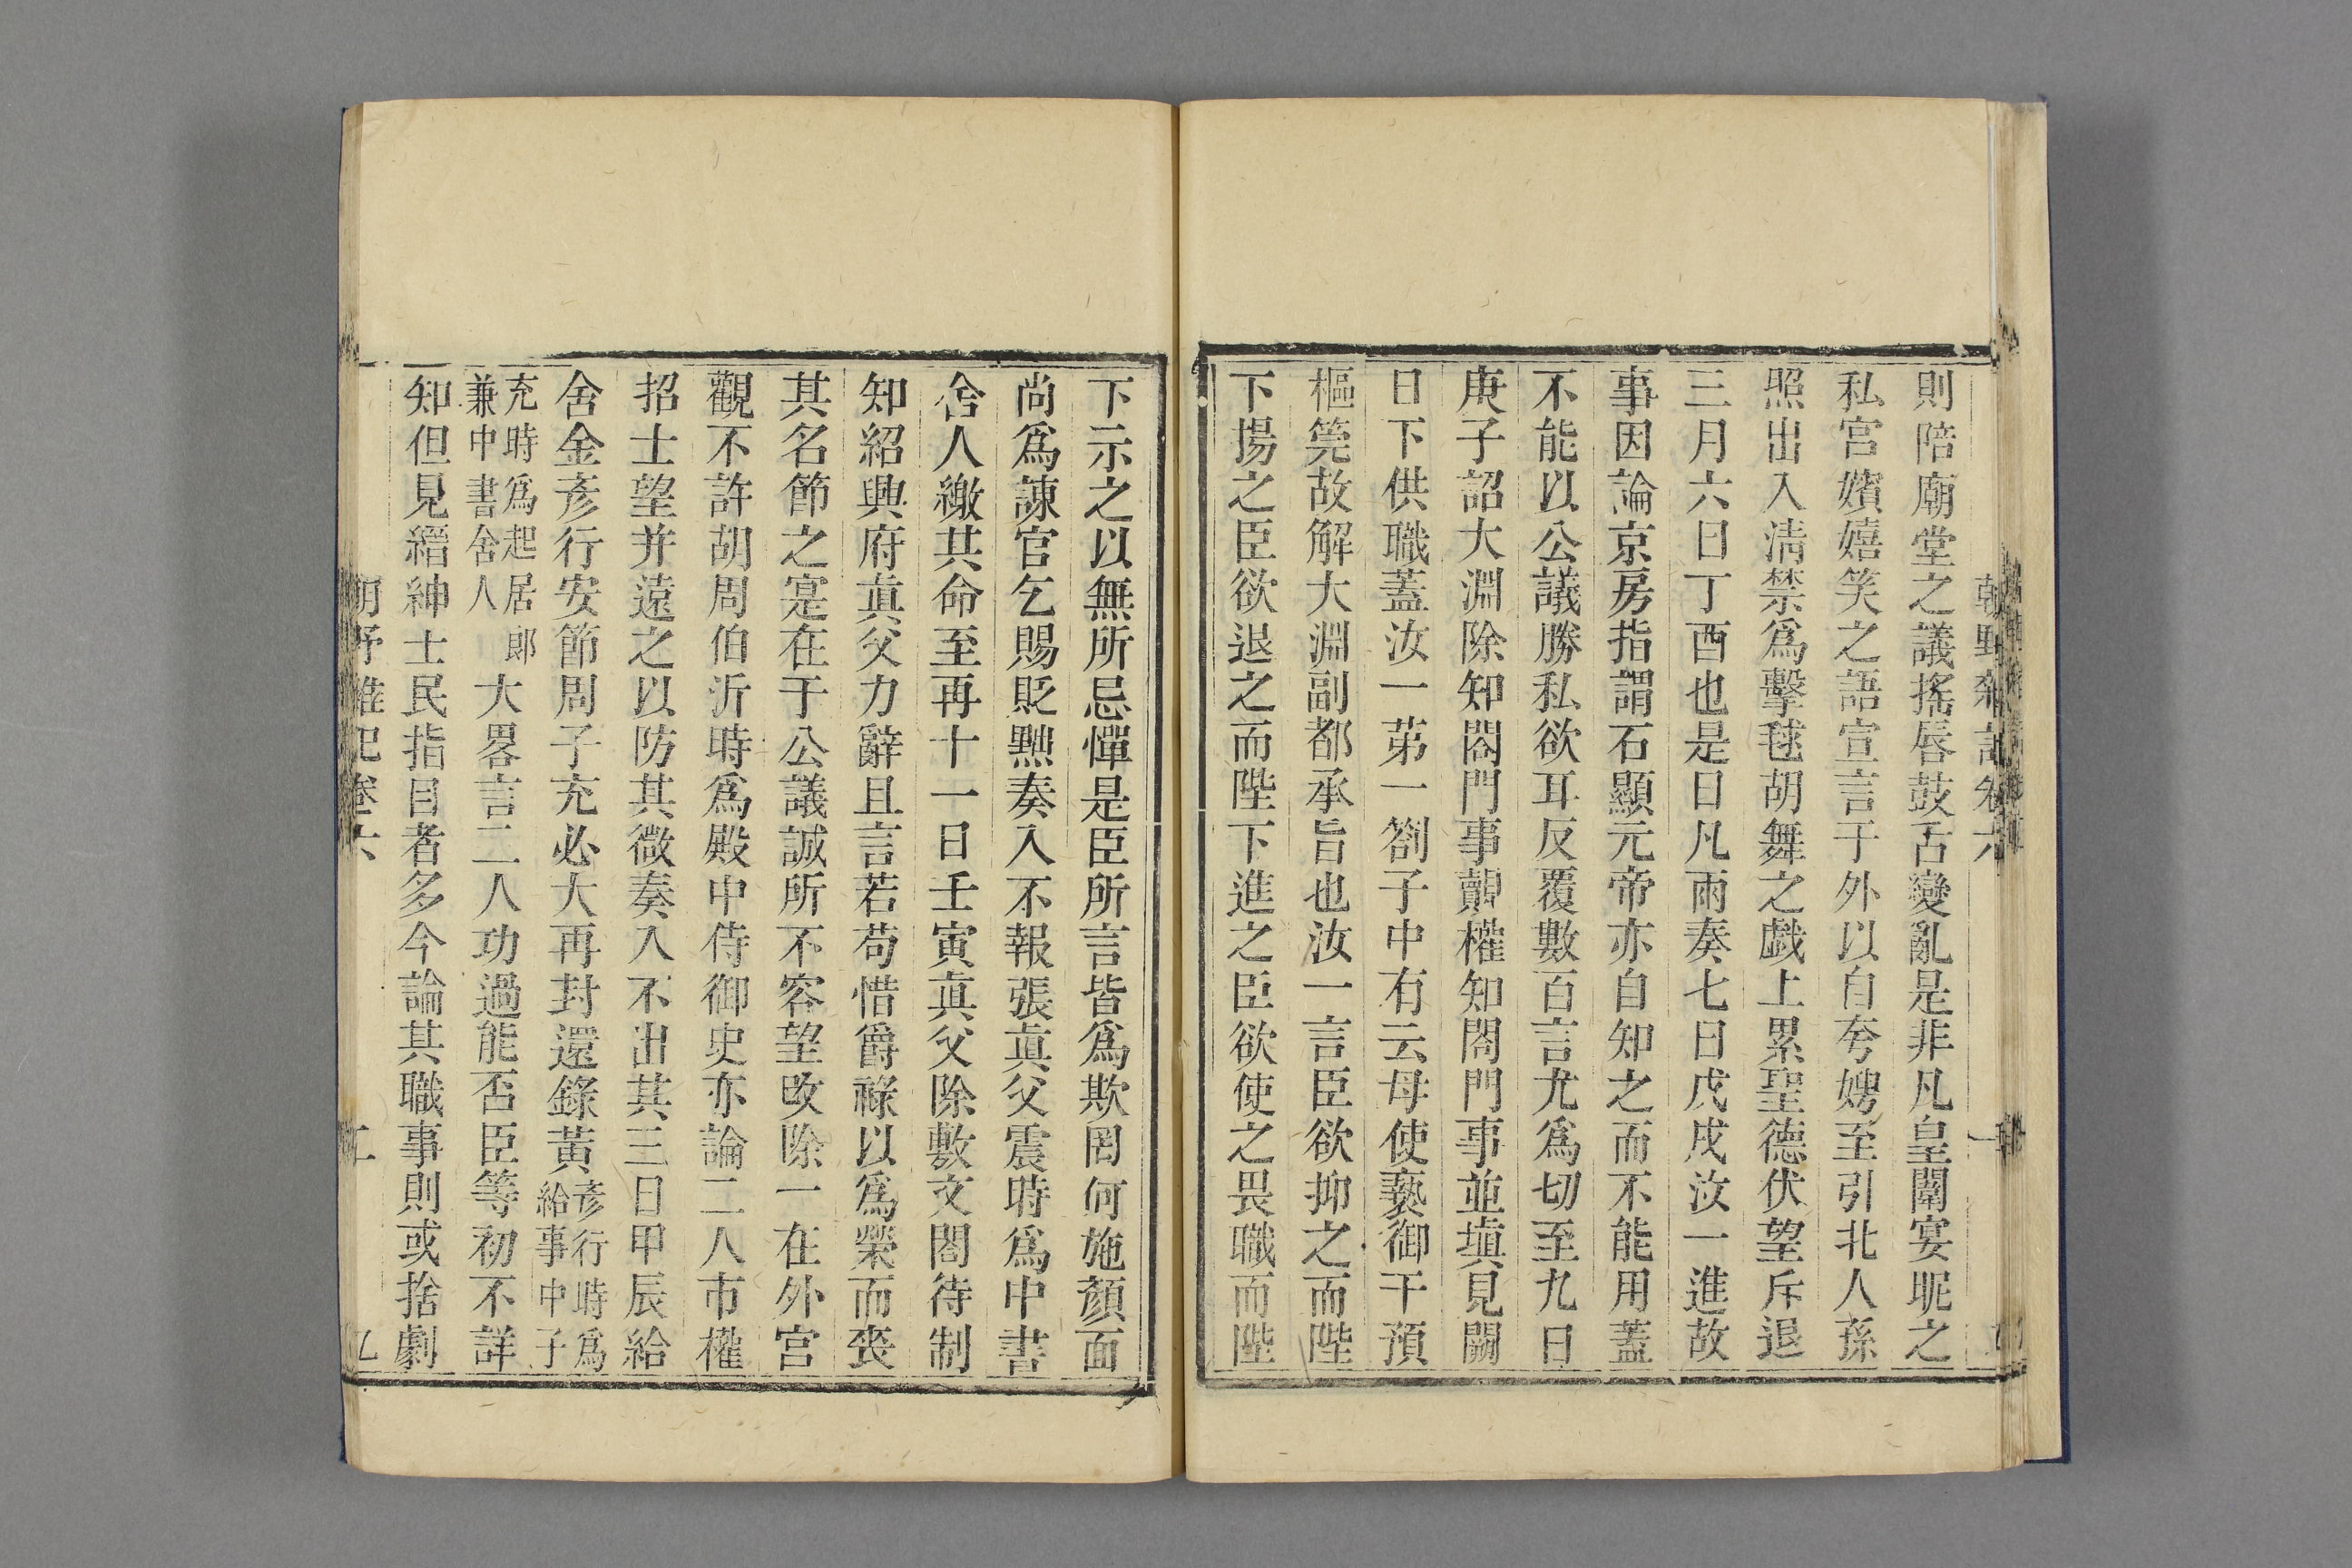 則陪廟堂之議搖唇鼓舌變亂是非凡皇闈宴昵之
私宮嬪嬉笑之語宣言于外以自夸嫂至引北人孫
照出入清禁爲擊毬胡舞之戯上累聖德伏望斥退
三月六日丁酉也是日凡兩奏七日戊戌汝一進故
事因論京房指謂石顯元帝亦自知之而不能用蓋
不能以公議勝私欲耳反覆數百言尤爲切至九日
庚子詔大淵除知閤門事覿權知閤門事並塡見闕
日下供職蓋汝一苐一劄子中有云母使褻御干預
樞筦故解大淵副都承旨也汝一言臣欲抑之而陛
下揚之臣欲退之而陛下進之臣欲使之畏職而陛
下示之以無所忌憚是臣所言皆爲欺罔何施顏面
尚爲諫官乞賜貶黜奏入不報張眞父震時爲中書
舍人繳其命至再十一日壬寅眞父除敷文閣待制
知紹興府眞父力辭且言若苟惜爵祿以爲榮而喪
其名節之寔在于公議誠所不容望改除一在外宮
觀不許胡周伯沂時爲殿中侍御史亦論二人市權
招士望并遠之以防其微奏入不出其三日甲辰給
舍金彥行安節周子充必大再封還錄黃彥行時爲給事中子
充時爲起居郎兼中書舍人大畧言二人功過能否臣等初不詳
知但見縉紳士民指目者多今論其職事則或捨劇